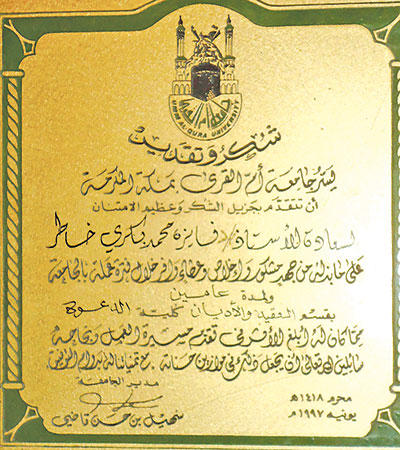 جامعة أم القرى
UMM AL-QURA UNIVERSITY
شكر وتقدير
يسر جامعة أم القرى بمكة المكرمة
أن تتقدم بجزيل الشكر وعظيم الامتنان
لسعادة الأستاذ/ فائزة محمد بكري خاطر
على ما بذله من جهد مشكور وإخلاص وعطاء وافر خلال فترة عمله بالجامعة
ولمدة عامين
بقسم العقيدة والأديان كلية الدعوة
مما كان له أبلغ الأثر في تقدم مسيرة العمل ونجاحه
سائلين الله تعالى أن يجعل ذلك في موازين حسناته . مع تمنياتنا له بدوام التوفيق
مدير الجامعة
سهيل بن حسن قاضي
محرم ١٤١٨هـ
يونيه ١٩٩٧م